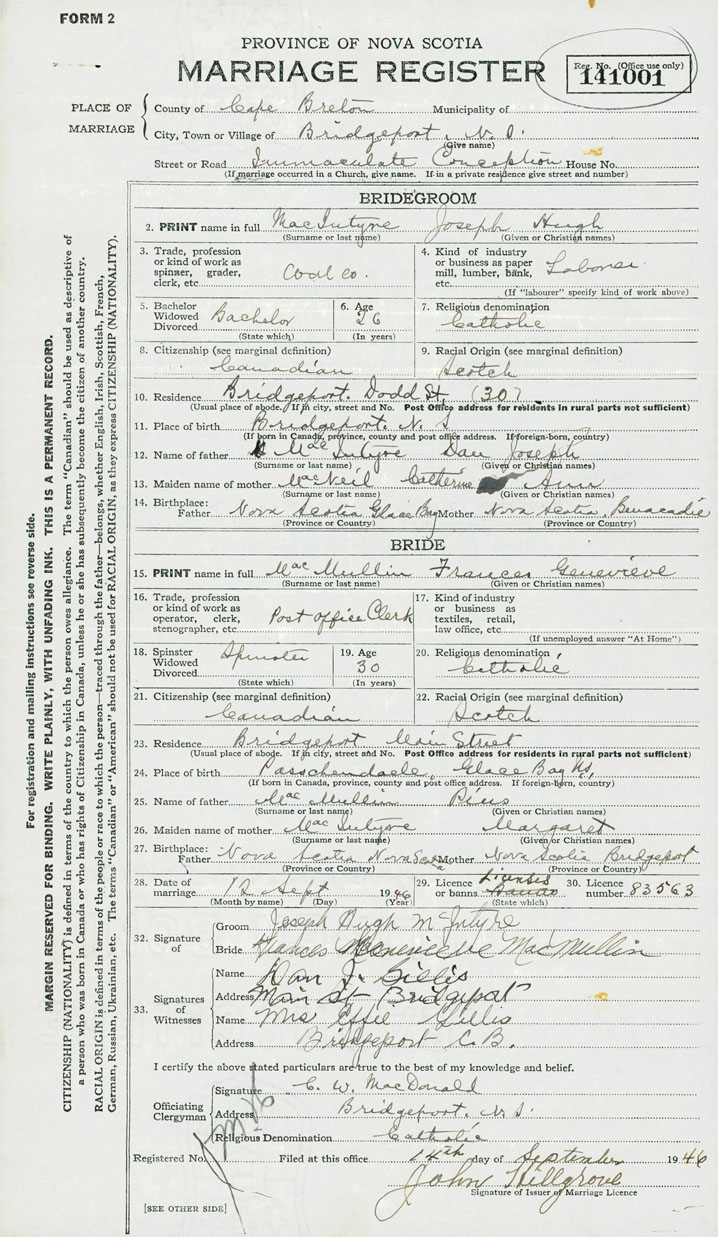 FORM 2
PROVINCE OF NOVA SCOTIA
MARRIAGE REGISTER
Reg. No. (Office use only)
141001
PLACE OF MARRIAGE
County of Cape Breton Municipality of
City, Town or Village of Bridgeport, N. S.
(Give name)
Street or Road Immaculate Conception House No.
(If marriage occurred in a Church, give name. If in a private residence give street and number)
BRIDEGROOM
2. PRINT name in full MacIntyre Joseph Hugh
(Surname or last name) (Given or Christian names)
3. Trade, profession or kind of work as spinner, grader, clerk, etc. Coal co.
4. Kind of industry or business as paper mill, lumber, bank, etc. Laborer
(If "labourer" specify kind of work above)
5. Bachelor Widowed Divorced Bachelor (State which)
6. Age 26 (In years)
7. Religious denomination Catholic
8. Citizenship (see marginal definition) Canadian
9. Racial Origin (see marginal definition) Scotch
10. Residence Bridgeport. Dodd St. (307
(Usual place of abode. If in city, street and No. Post Office address for residents in rural parts not sufficient)
11. Place of birth Bridgeport. N. S
(If born in Canada, province, county and post office address. If foreign-born, country)
12. Name of father MacIntyre Dan Joseph
(Surname or last name) (Given or Christian names)
13. Maiden name of mother MacNeil Catherine Ann
(Surname or last name) (Given or Christian names)
14. Birthplace: Father Nova Scotia Glace Bay Mother Nova Scotia, Benacadie
(Province or Country) (Province or Country)
BRIDE
15. PRINT name in full MacMullin Frances Genevieve
(Surname or last name) (Given or Christian names)
16. Trade, profession or kind of work as operator, clerk, stenographer, etc. Post office Clerk
17. Kind of industry or business as textiles, retail, law office, etc.
(If unemployed answer "At Home")
18. Spinster Widowed Divorced Spinster (State which)
19. Age 30 (In years)
20. Religious denomination Catholic
21. Citizenship (see marginal definition) Canadian
22. Racial Origin (see marginal definition) Scotch
23. Residence Bridgepot Main Street
(Usual place of abode. If in city, street and No. Post Office address for residents in rural parts not sufficient)
24. Place of birth Passchendaele, Glace Bay
(If born in Canada, province, county and post office address. If foreign-born, country)
25. Name of father MacMullin Pius
(Surname or last name) (Given or Christian names)
26. Maiden name of mother MacIntyre Margaret
(Surname or last name) (Given or Christian names)
27. Birthplace: Father Nova Scotia Nova Mother Nova Scotia Bridgeport
(Province or Country) (Province or Country)
28. Date of marriage 12 Sept 1946
(Month by name) (Day) (Year)
29. Licence or banns License (State which)
30. Licence number 83563
32. Signature of
Groom Joseph Hugh McIntyre
Bride Frances Genevieve MacMullin
33. Signatures of Witnesses
Name Dan J. Gillis
Address Main St Bridgepot
Name Mrs Effie Gillis
Address Bridgeport C.B.
I certify the above stated particulars are true to the best of my knowledge and belief.
Officiating Clergyman
Signature C. W. MacDonald
Address Bridgeport. N. S.
Religious Denomination Catholic
Registered No. Filed at this office 14th day of September 1946
John Hillgrove
Signature of Issuer of Marriage Licence
[SEE OTHER SIDE]
For registration and mailing instructions see reverse side.
MARGIN RESERVED FOR BINDING. WRITE PLAINLY, WITH UNFADING INK. THIS IS A PERMANENT RECORD.
CITIZENSHIP (NATIONALITY) is defined in terms of the country to which the person owes allegiance. The term "Canadian" should be used as descriptive of
a person who was born in Canada or who has rights of Citizenship in Canada, unless he or she has subsequently become the citizen of another country.
RACIAL ORIGIN is defined in terms of the people or race to which the person—traced through the father—belongs, whether English, Irish, Scottish, French,
German, Russian, Ukrainian, etc. The terms "Canadian" or "American" should not be used for RACIAL ORIGIN, as they express CITIZENSHIP (NATIONALITY).